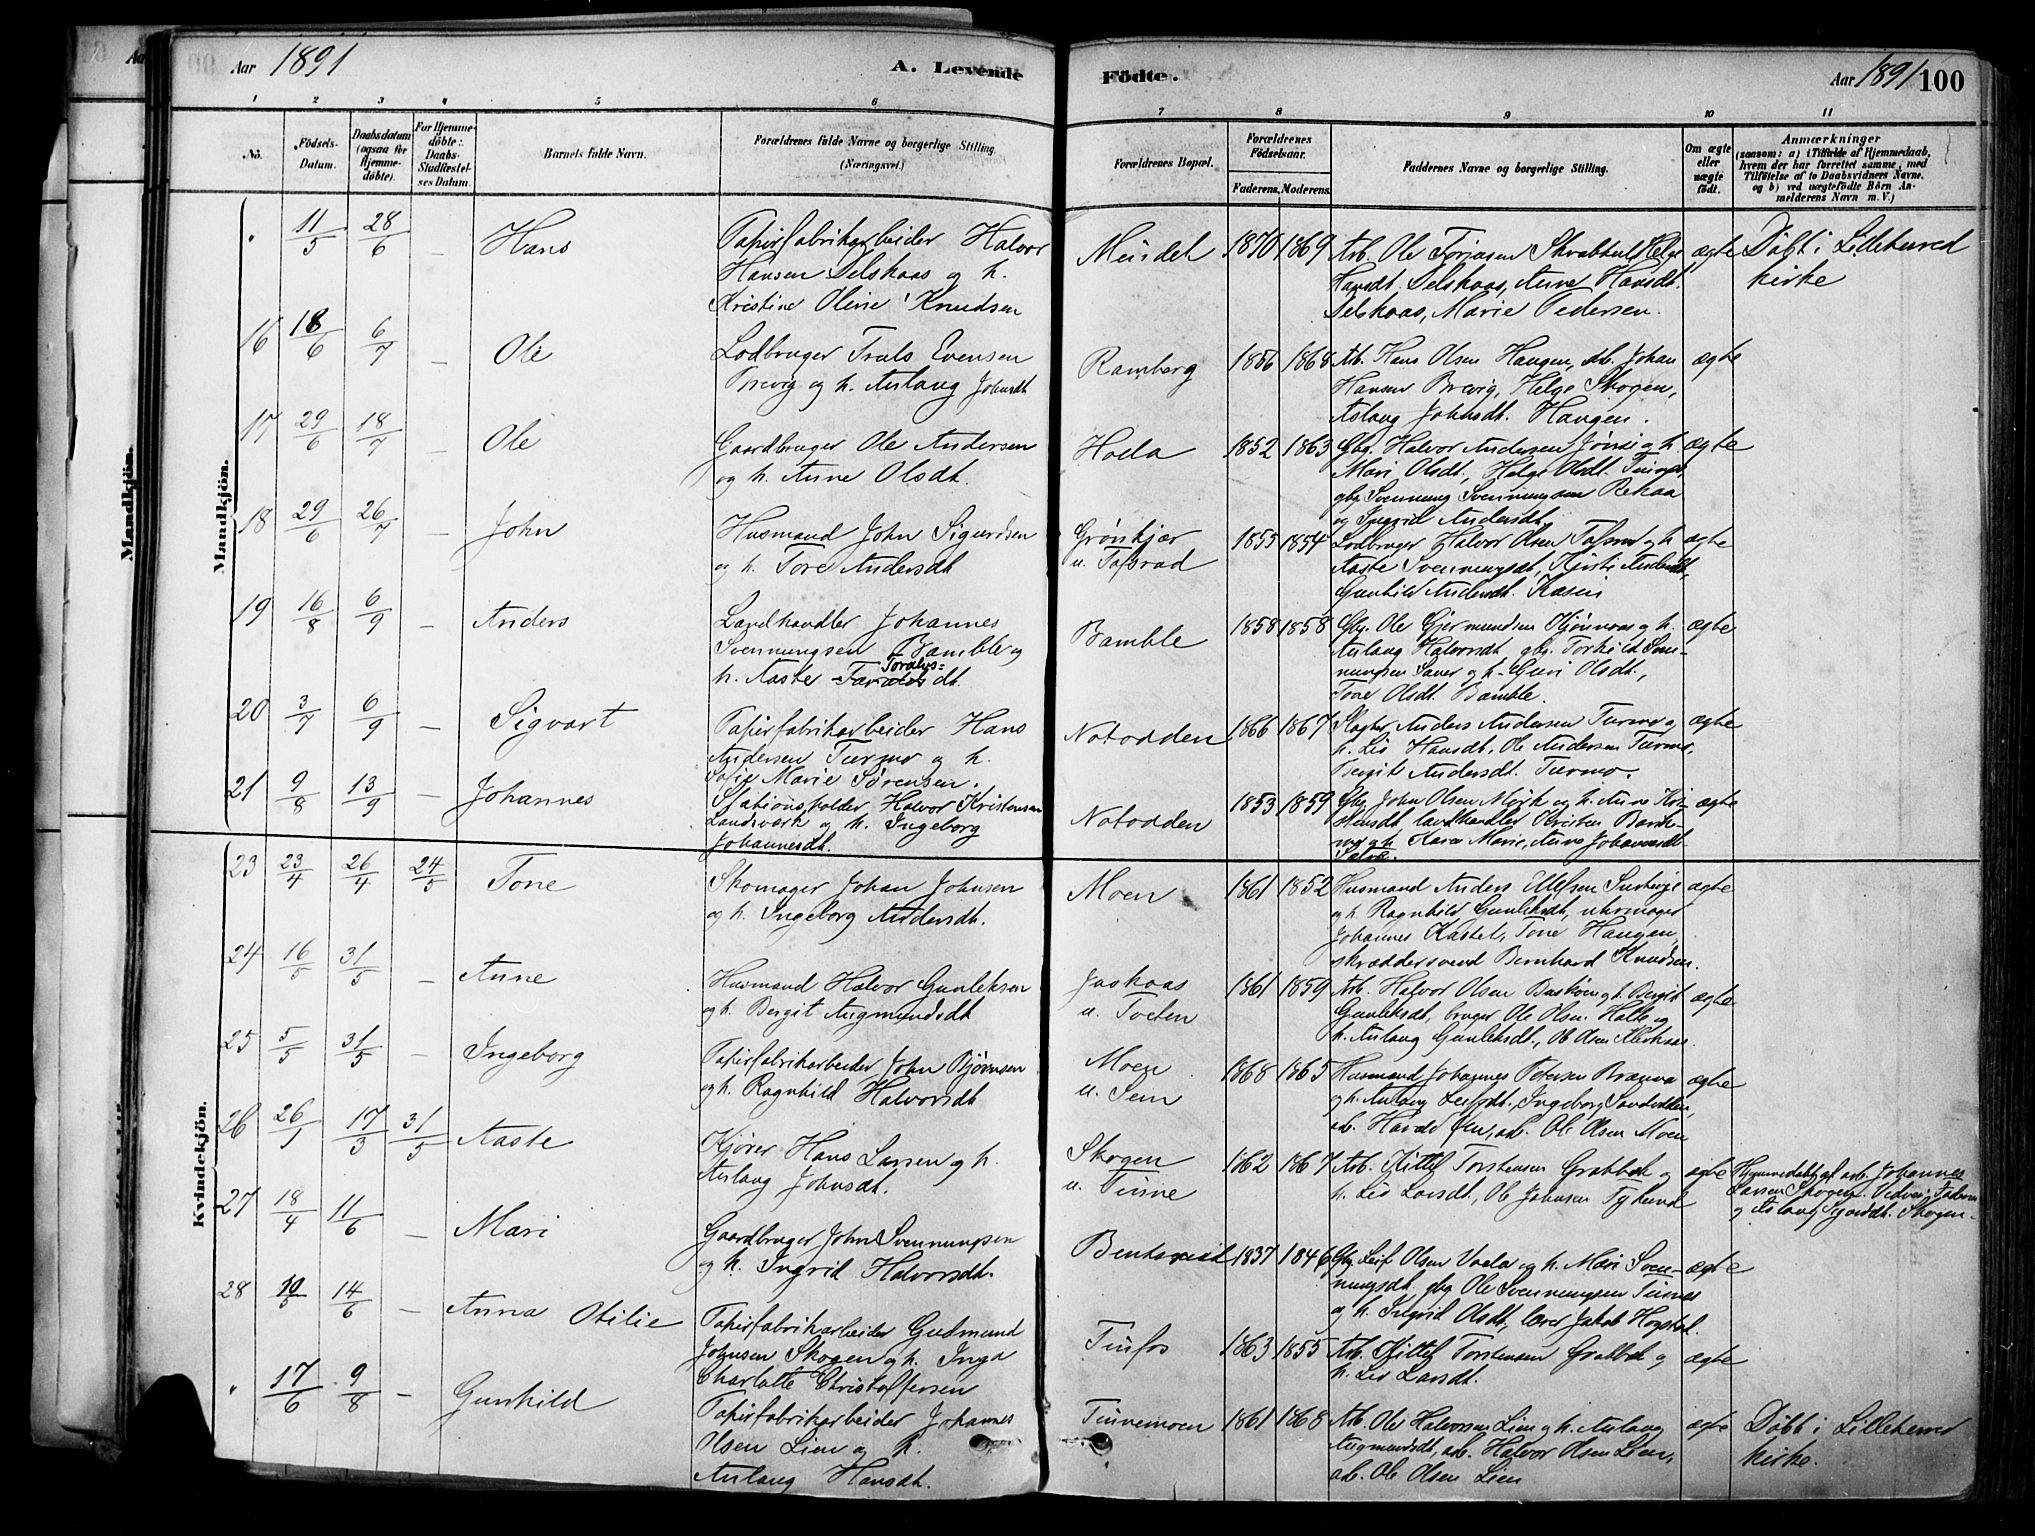 Aar 1891
A. Levende
Födte.
Aar 1891 100
1 2 3 4 5 6 7 8 9 10 11
No.
Födsels-
Datum.
Daabsdatum
(ogsaa for
Hjemme-
døbte).
For Hjemme-
døbte:
Daabs-
Stadfæstel-
ses Datum.
Barnets fulde Navn.
Forældrenes fulde Navne og borgerlige Stilling
(Næringsvei.)
Forældrenes Bopæl.
Forældrenes
Fødselsaar.
Faderens. Moderens.
Faddernes Navne og borgerlige Stilling.
Om ægte
eller
uægte
født.
Anmærkninger
(saasom: a) i Tilfælde af Hjemmedaab,
hvem der har forrettet samme, med
Tilføielse af to Daabsvidners Navne.
og b) ved uægtefødte Börn An-
melderens Navn m. V.)
Mandkjön.
Mandkjön.
" 11/5 28/6 – Hans
Papirfabrikarbeider Halvor
Hansen Delskaas og h.
Kristine Oline Knudsen
Mundal 1870 1869
Arb. Ole Torjusen Helge
Hansdt. Delskaas, Anne Hansdt.
Delskaas, Marie Pedersen.
ægte
Døbt i Lilleherred
kirke
16 18/6 6/7 – Ole
Lodbruger Truls Evensen
og h. Aslaug Johnsdt
Ramberg 1856 1868
Arb. Hans Olsen Haugen, arb. Johan
Hansen Brevig, Helge Skogen,
Aslaug Johnsdt. Haugen.
ægte
17 29/6 18/7 Ole
Gaardbruger Ole Andersen
og h. Anne Olsdt.
Hoela 1852 1863
Gbr. Halvor Andersen og h.
Mari Olsdt, Helge Olsdt. Tinnes
gbr Svennung Svennungsen Rekaa
og Ingrid Andersdt.
ægte
18 29/6 26/7 – John
Husmand John Sigurdsen
og h. Tore Andersdt
Grønkjær
u. Tofsrud
1855 1854
Lodbruger Halvor Olsen og h
Aaste Svennungsdt, Kirsti Andersdt,
Gunhild Andersdt. Kasin
ægte
19 16/8 6/9 – Anders
Landhandler Johannes
Svennungsen Bamble og
Toralvs=
h. Aaste dt.
Bamble 1858 1858
Gbr. Ole Gjermundsen og h.
Aslaug Halvorsdt gbr. Torkild Sven-
nungsen og h. Guri Olsdt,
Tone Olsdt. Bamble.
ægte
20 3/7 6/9 – Sigvart
Papirfabrikarbeider Hans
Andersen Turmo og h.
Marie Sørensen.
Notodden 1866 1867
Slagter Anders Andersen Turmo og
h. Liv Hansdt, Ole Andersen Turmo,
Bergit Andersdt. Turmo.
ægte
21 9/8 13/9 – Johannes
Stationsholder Halvor Kristensen
Landsværk og h. Ingeborg
Johannesdt.
Notodden 1853 1859
Gbr. John Olsen Mørk og h. Anne Kri-
stensdt, landhandler
og h. Karen Marie, Anne Johannesdt
ægte
Kvindekjön.
23 23/4 26/4 24/5 Tone
Skomager Johan Johnsen
og h. Ingeborg Andersdt.
Moen 1861 1852
Husmand Anders Ellefsen
og h. Ragnhild Gunleksdt, skomager
Johannes Kastet, Tone Haugen,
skræddersvend Bernhard Knudsen.
ægte
24 16/5 31/5 – Anne
Husmand Halvor Gunleksen
og h. Bergit Augmundsdt
Jaskaas
u. Toften
1861 1859
Arb. Halvor Olsen og h. Bergit
Gunleksdt, bruger Ole Olsen Holte og
h. Aslaug Gunleksdt., Ole Olsen
ægte
25 5/5 31/5 – Ingeborg
Papirfabrikarbeider John Bjørnsen
og h. Ragnhild Halvorsdt
Moen
u. Sem
1868 1865
Husmand Johannes Petersen
og h. Aslaug Leifsdt. Ingeborg
arb. Ole Olsen Moen
ægte
26 26/1 17/3 31/5 Aaste
Kjører Hans Larsen og h.
Aslaug Johnsdt.
Skogen
u. Tinne
1862 1867
Arb. Kittil Torstensen Grabbek og
h. Liv Larsdt, Ole Johnsen
ægte
Hjemmedøbt af arb. Johannes
Larsen Skogen. Vidner: Faderen
og Aslaug Sigurdsdt. Skogen.
27 18/4 11/6 – Mari
Gaardbruger John Svennungsen
og h. Ingrid Halvorsdt.
1837 1846
Gbr. Leif Olsen Vaala og h. Mari Sven-
nungsdt, gbr. Ole Svennungsen Tinnes
og h. Ingrid Olsdt, lærer Jakob
ægte
28 10/5 14/6 – Anna Otilie
Papirfabrikarbeider Gudmund
Johnsen Skogen og h. Inga
Charlotte Christoffersen
Tinfos 1863 1855
Arb. Kittil Torstensen Grabbek og
h. Liv Larsdt.
ægte
" 17/6 9/8 – Gunhild
Papirfabrikarbeider Johannes
Olsen Lien og h.
Aslaug Hansdt.
Tinnemoen 1861 1868
Arb. Ole Halvorsen Lien og h. Aslaug
Augmundsdt, arb. Halvor Olsen Lien,
arb. Ole Olsen Lien
ægte
Døbt i Lilleherred
kirke.